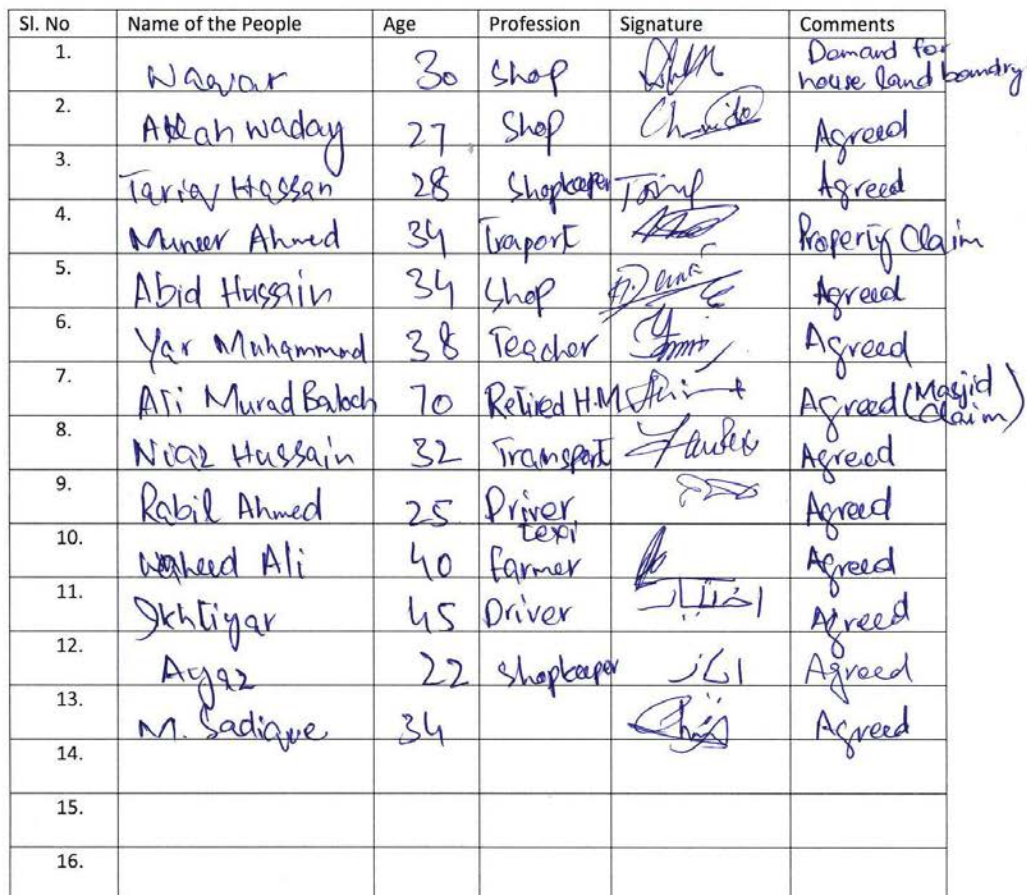 Sl. No Name of the People Age Profession Signature Comments
1. Waqar 30 Shop Demand for house land boundry
2. Allah waday 27 Shop Agreed
3. Tariq Hassan 28 Shopkeeper Tariq Agreed
4. Muneer Ahmed 34 Traport Property Claim
5. Abid Hussain 34 Shop Agreed
6. Yar Muhammad 38 Teacher Agreed
7. Ali Murad Baloch 70 Retired H.M Agreed (Masjid Claim)
8. Niaz Hussain 32 Transport Agreed
9. Rabil Ahmed 25 Driver texi Agreed
10. Waheed Ali 40 farmer Agreed
11. Ikhtiyar 45 Driver اختیار Agreed
12. Ayaz 22 Shopkeeper ایاز Agreed
13. M. Sadique 34 Agreed
14.
15.
16.